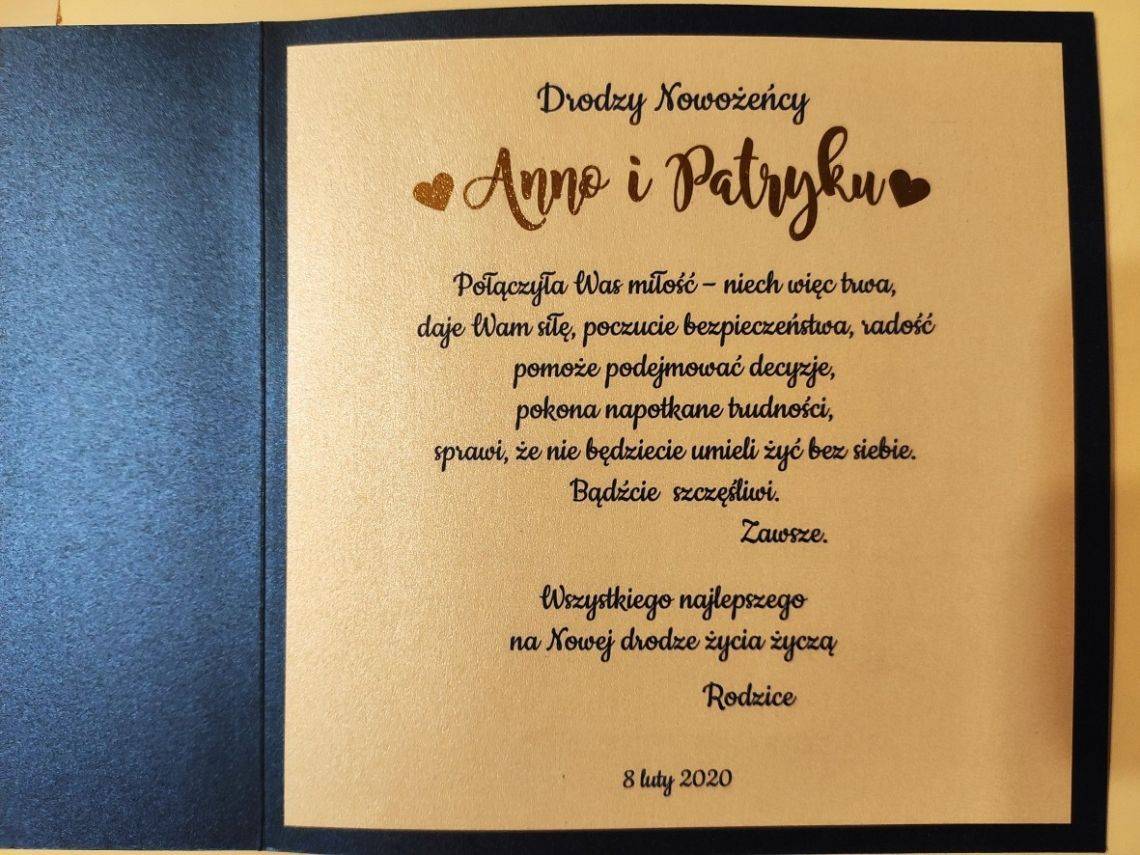 Drodzy Nowożeńcy
Anno i Patryku
Połączyła Was miłość – niech więc trwa,
daje Wam siłę, poczucie bezpieczeństwa, radość
pomoże podejmować decyzje,
pokona napotkane trudności,
sprawi, że nie będziecie umieli żyć bez siebie.
Bądźcie szczęśliwi.
Zawsze.
Wszystkiego najlepszego
na Nowej drodze życia życzą
Rodzice
8 luty 2020